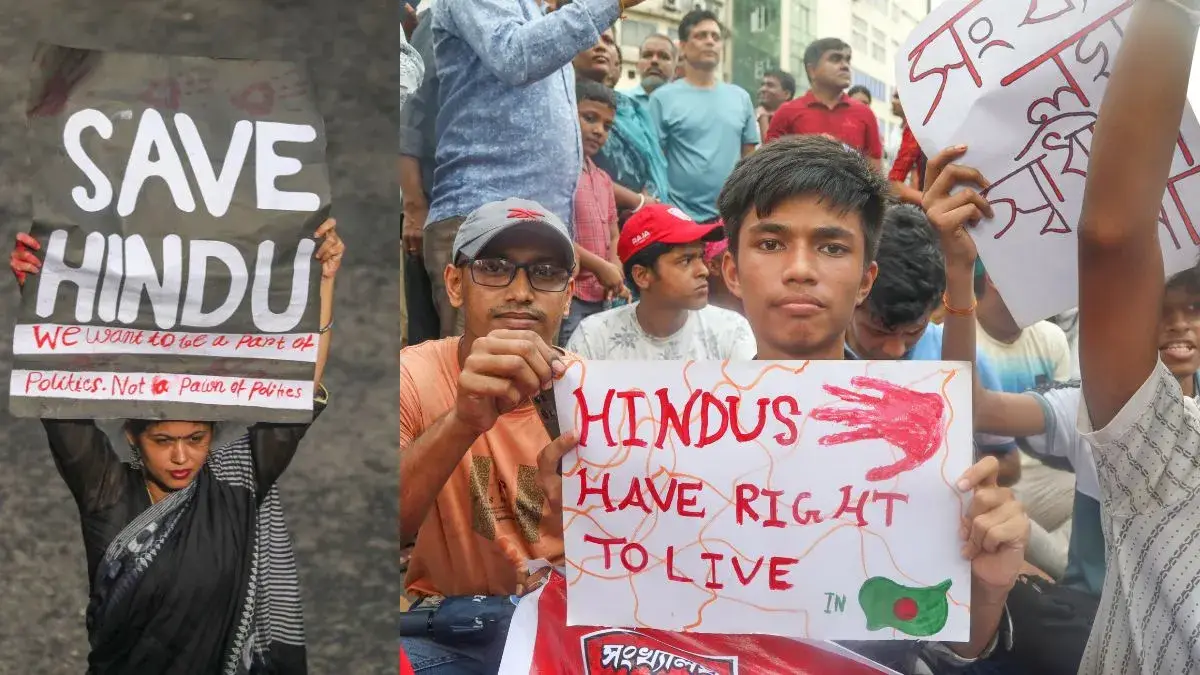 SAVE
HINDU
We want to be a Part of
Politics. Not a Pawn of Polities
HINDUS
HAVE RIGHT
TO LIVE
IN
সংখ্যাল